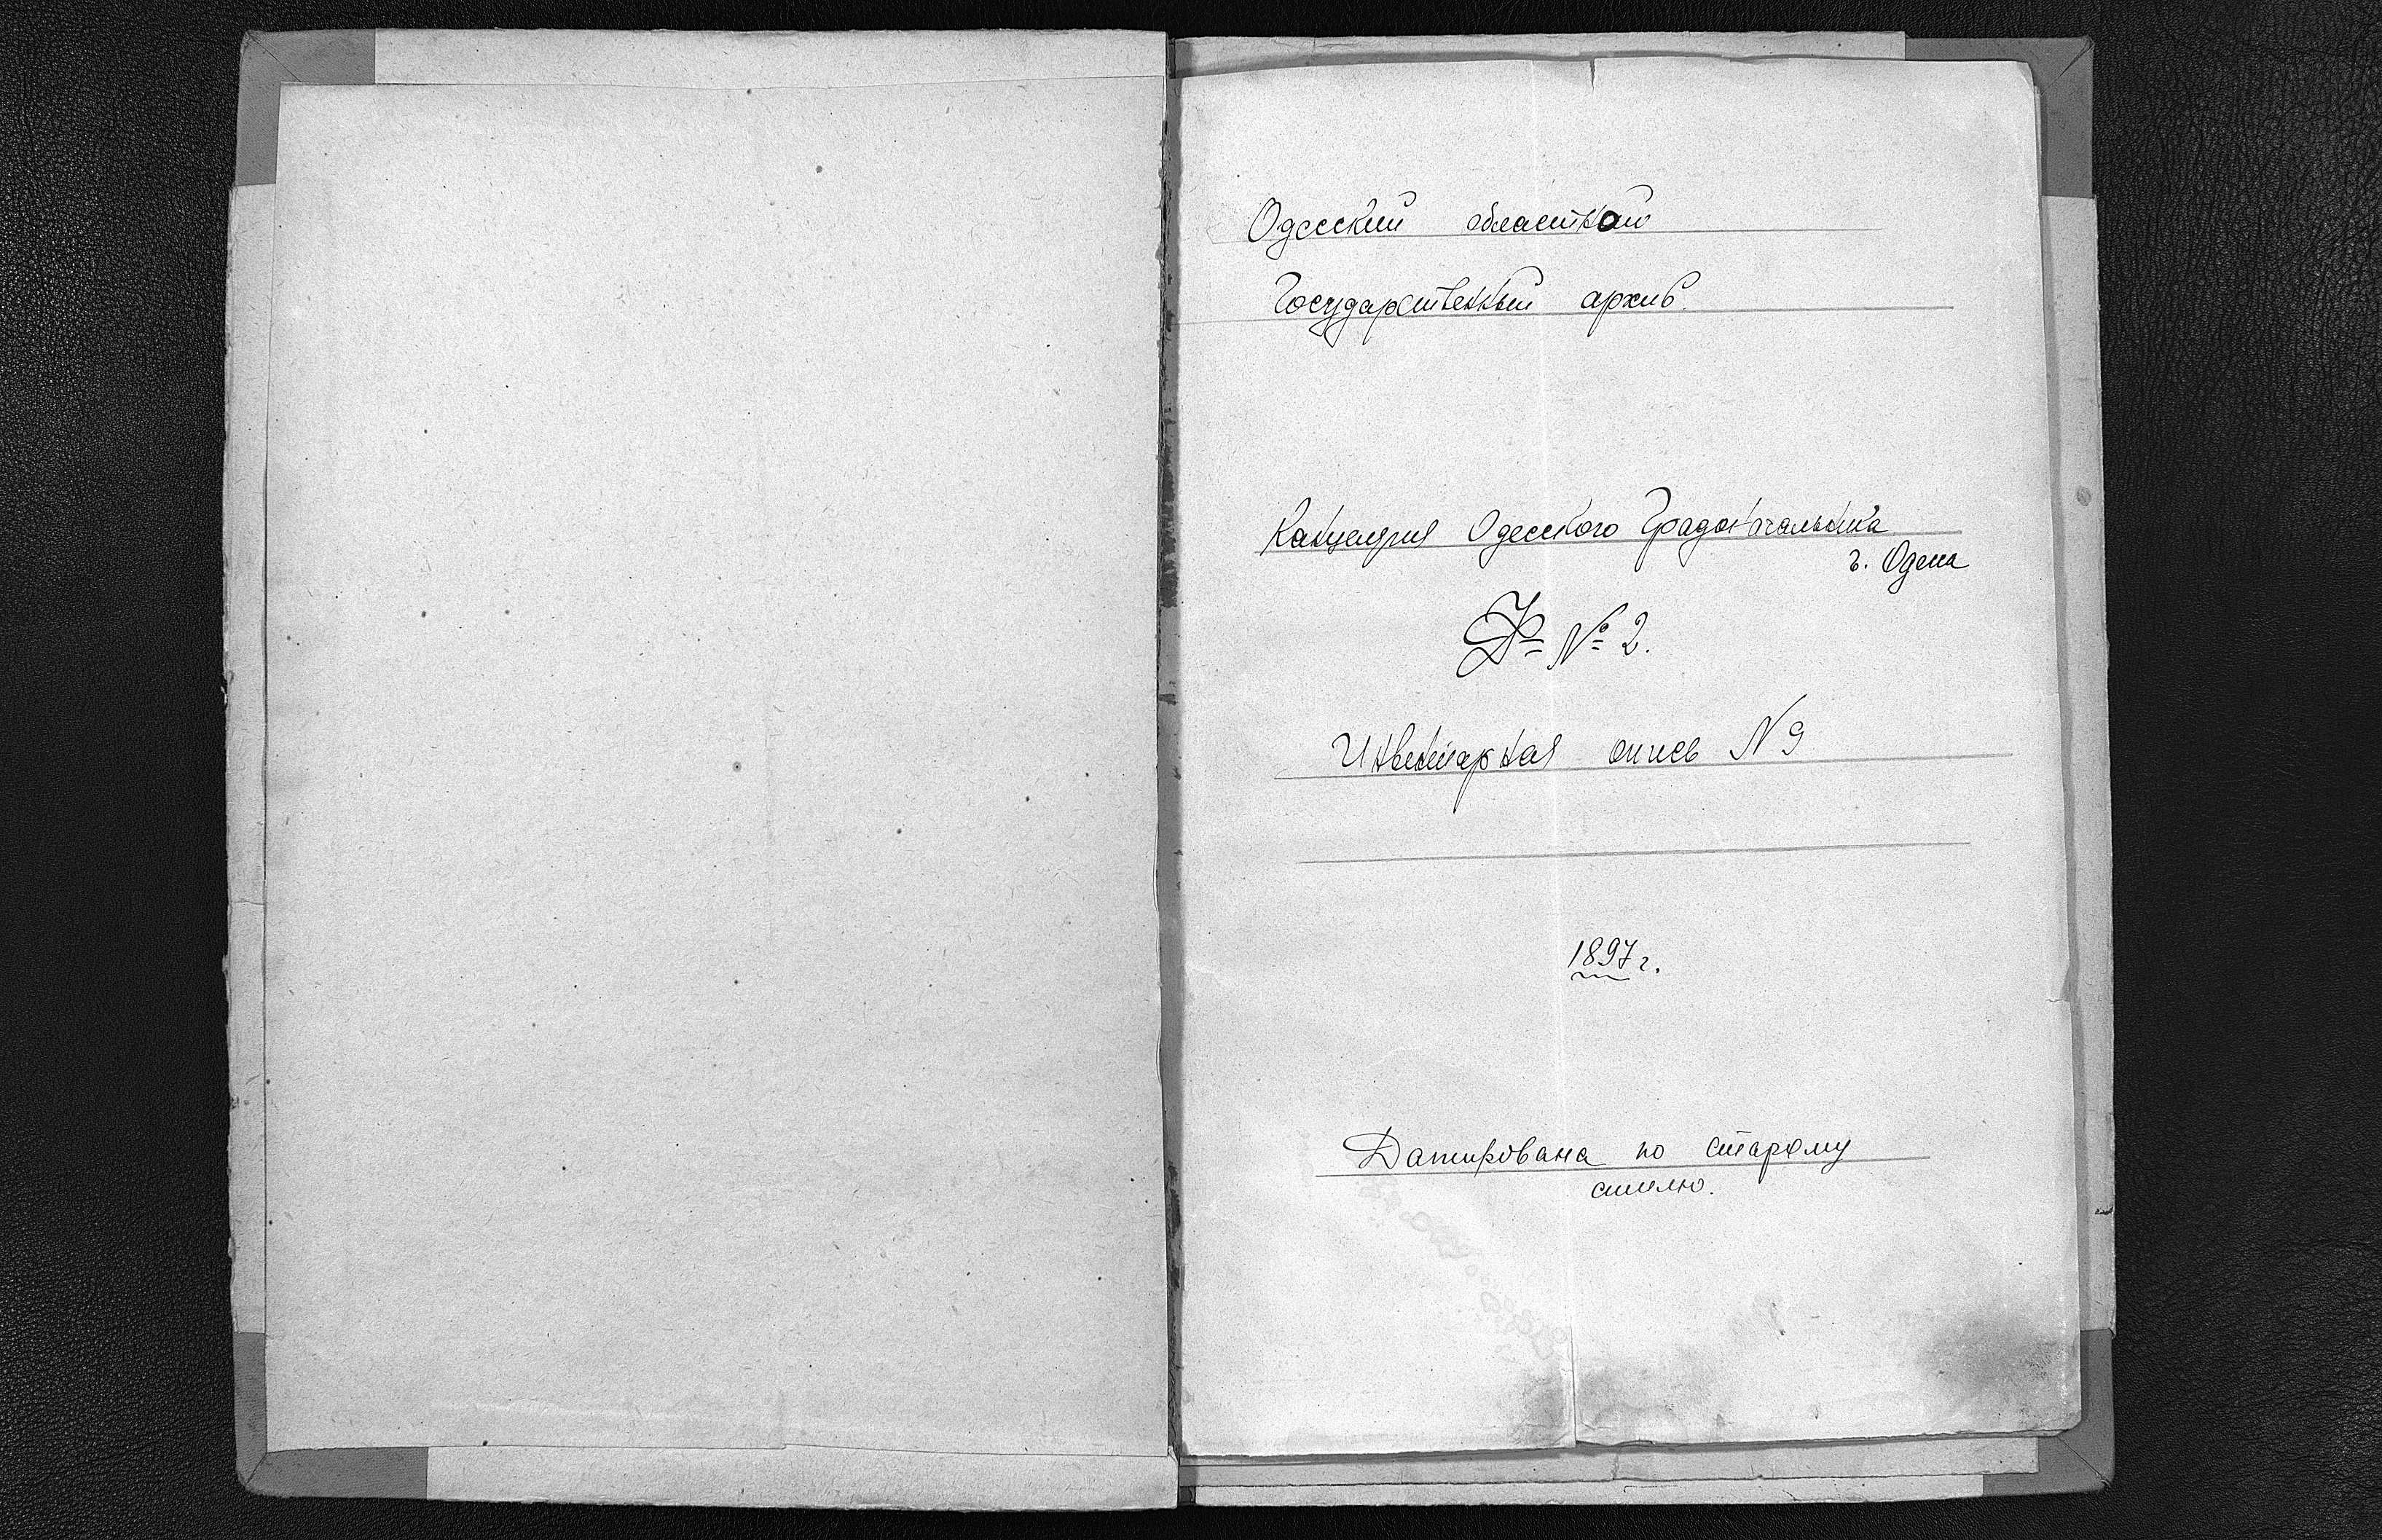 Одесский областной
Государственный архив.
Канцелярия Одесского Градоначальника
г. Одесса
Ф= № 2.
Инвентарная опись N 9
1897 г.
Датирована по старому
стилю.